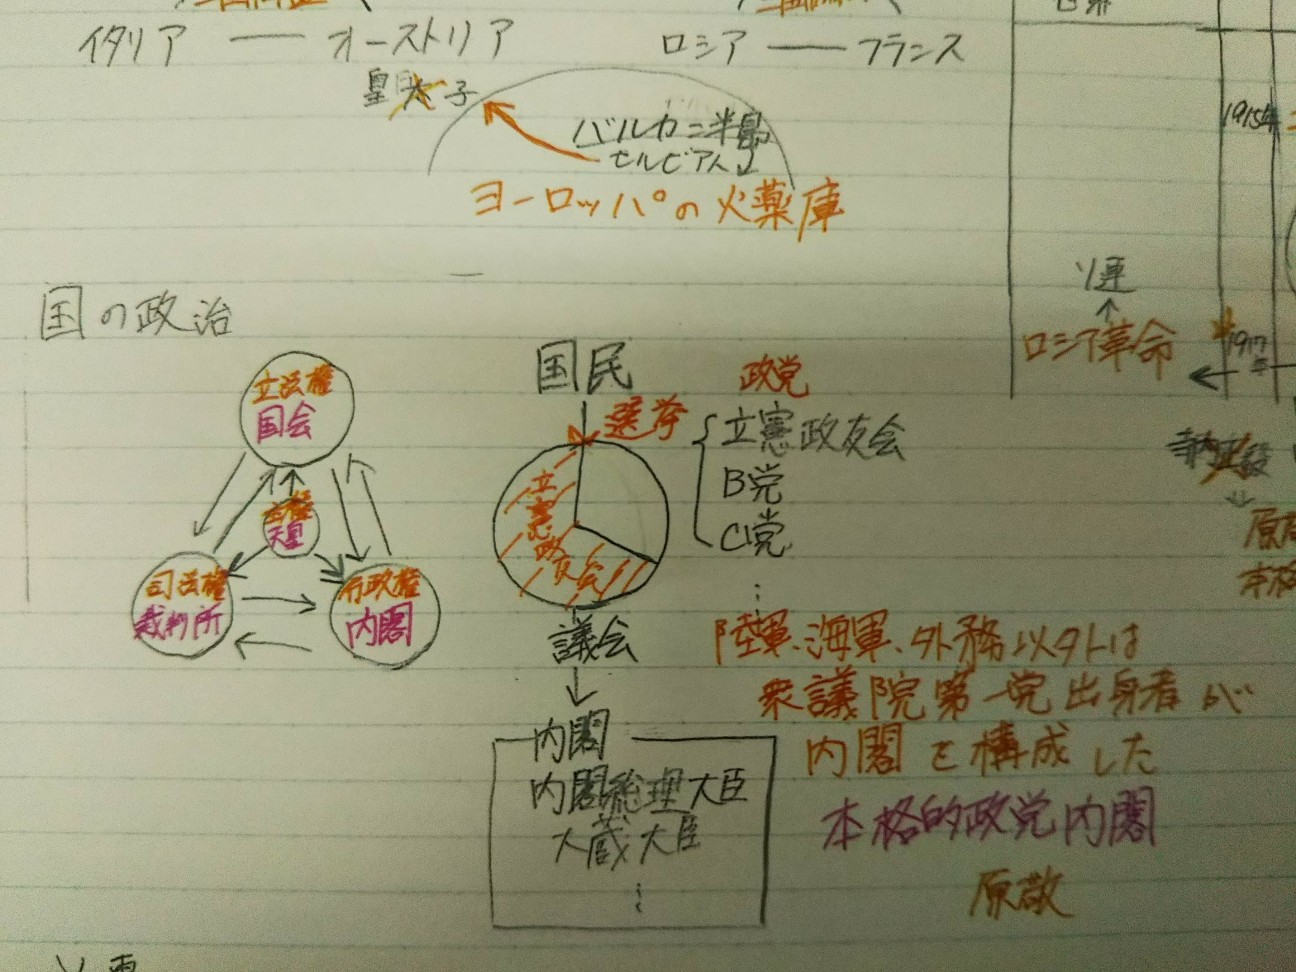 イタリア ── オーストリア
ロシア ── フランス
皇太子
バルカン半島
セルビア人
ヨーロッパの火薬庫
1915年
ソ連
↑
ロシア革命
1917年
国の政治
立法権
国会
主権
天皇
司法権
裁判所
行政権
内閣
国民
選挙
立憲政友会
議会
↓
内閣
内閣総理大臣
大蔵大臣
政党
立憲政友会
B党
C党
陸軍、海軍、外務以外は
衆議院第一党出身者が
内閣を構成した
本格的政党内閣
原敬